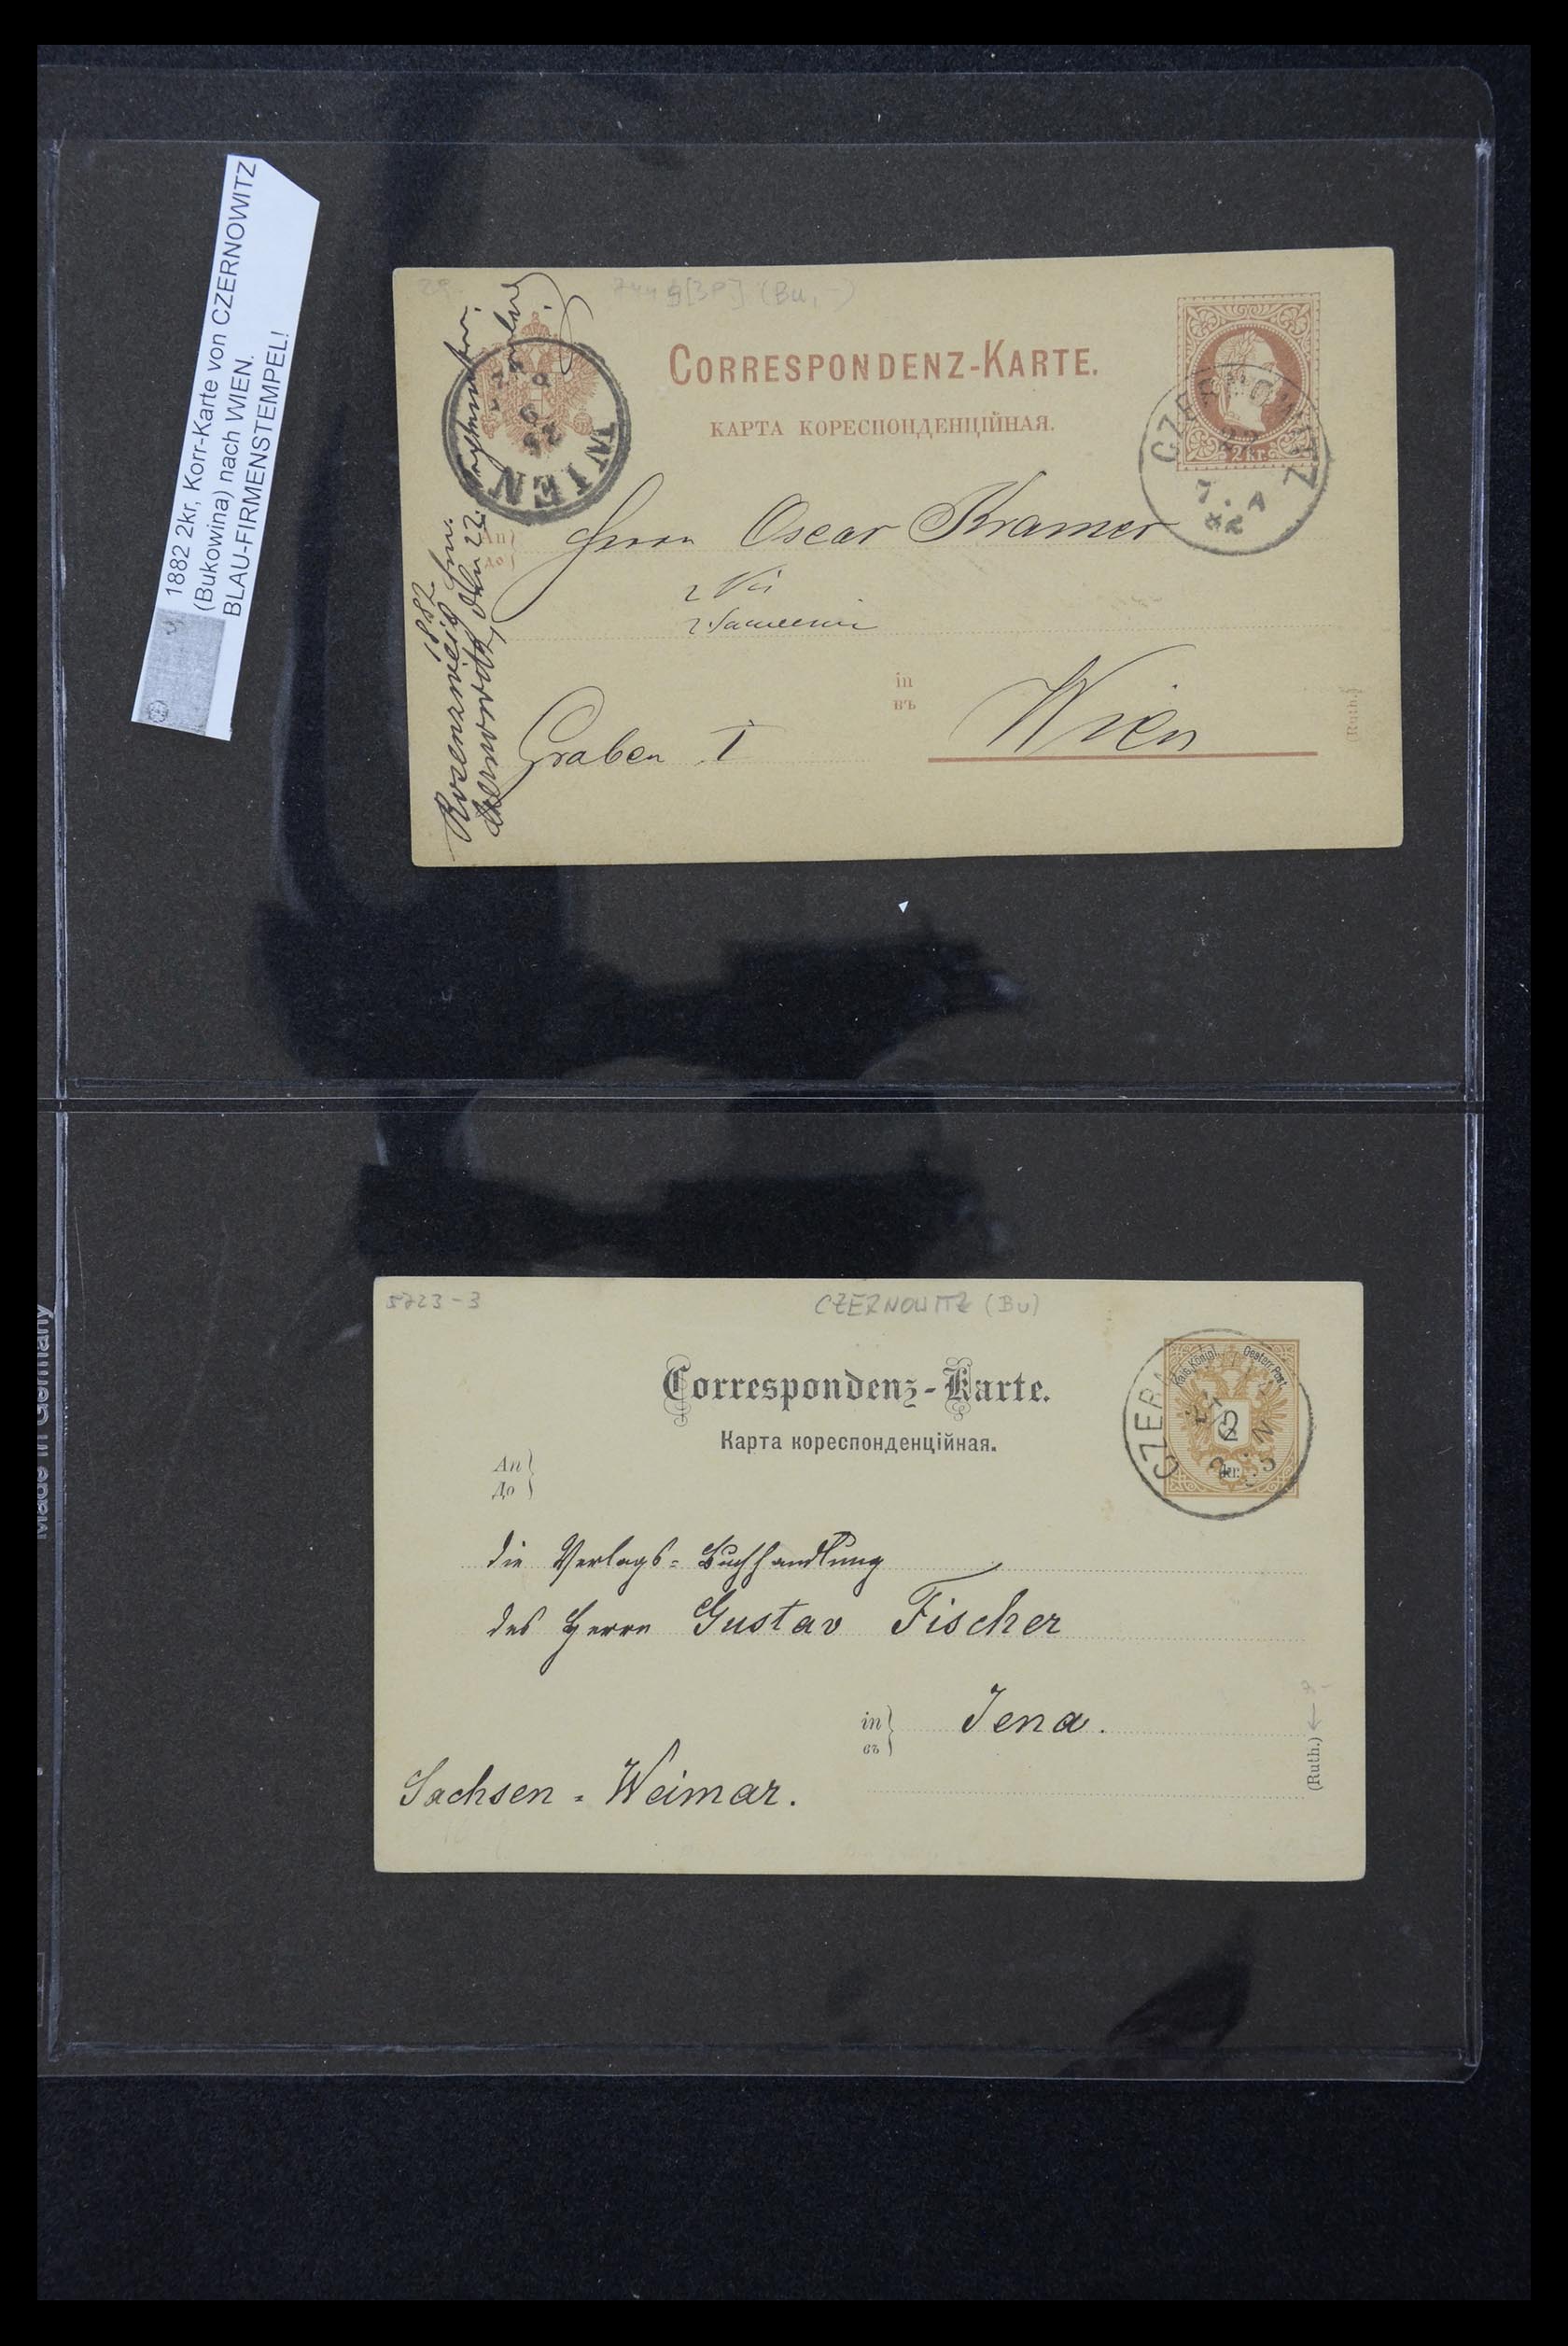 1882 2kr, Korr-Karte von CZERNOWITZ
(Bukowina) nach WIEN.
BLAU-FIRMENSTEMPEL!
(Bu,-)
CORRESPONDENZ-KARTE.
КАРТА КОРЕСПОНДЕНЦІЙНАЯ.
2 kr.
CZERNOWITZ
WIEN
An
До
Herrn Oscar Kramer
in
въ
Wien
Graben 7
(Ruth.)
1882
Czernowitz, den 22.
Made in Germany
5723-3
CZERNOWITZ (Bu)
Correspondenz-Karte.
Карта кореспонденційная.
Kais. Königl. Oesterr. Post
2
kr.
CZERN
An
До
die Verlags=Buchhandlung
des Herrn Gustav Fischer
in
въ
Jena.
Sachsen=Weimar.
(Ruth.)